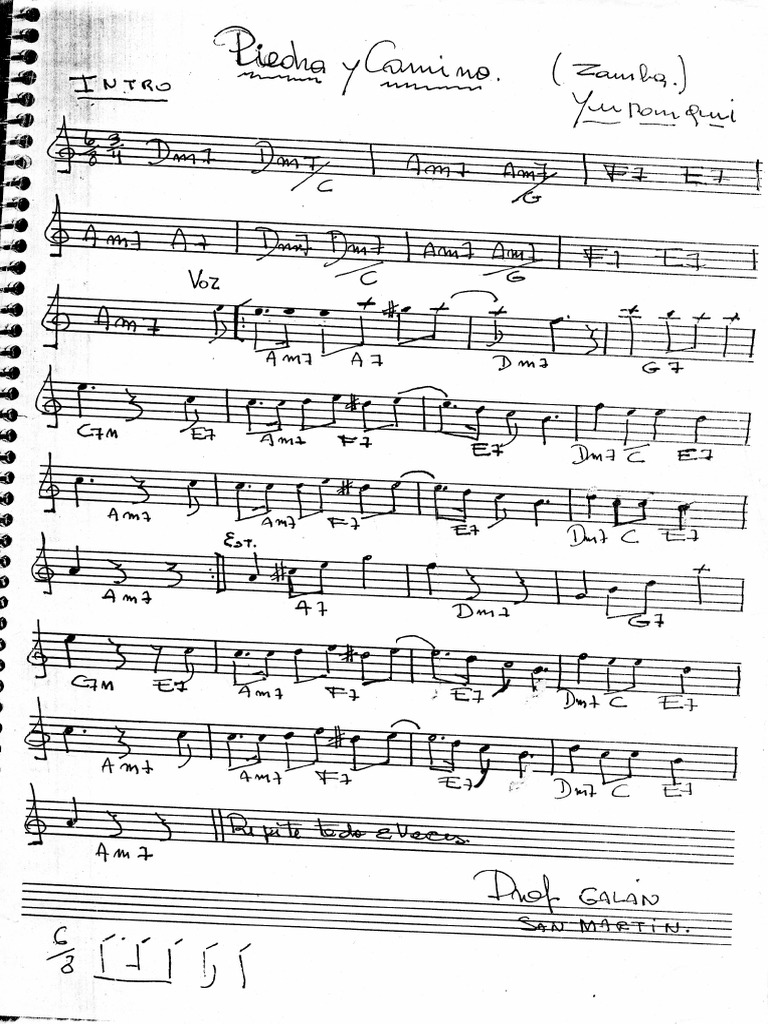 Piedra y Camino. (Zamba.)
INTRO
Yupanqui
6/8 3/4 Dm7 Dm7/C Am7 Am7/G F7 E7
Am7 A7 Dm7 Dm7/C Am7 Am7/G F7 E7
Voz
Am7 Am7 A7 Dm7 G7
C7M E7 Am7 F7 E7 Dm7 C E7
Am7 Am7 F7 E7 Dm7 C E7
Est.
Am7 A7 Dm7 G7
C7M E7 Am7 F7 E7 Dm7 C E7
Am7 Am7 F7 E7 Dm7 C E7
Repite todo 2 Veces.
Am7
Prof. GALÁN
SAN MARTÍN.
6/8